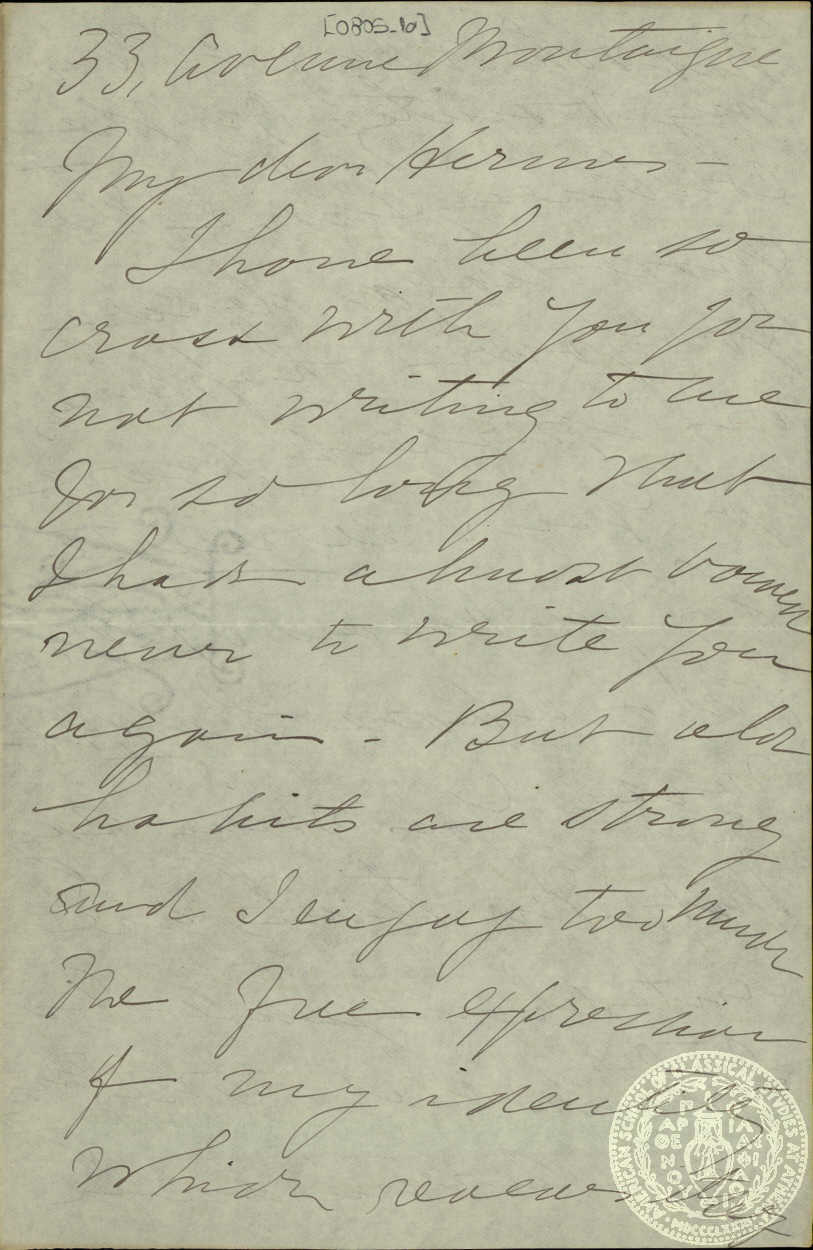 [0805_10]
33, Avenue Montaigne
My dear Hermes –
I have been so
cross with you for
not writing to me
for so long that
I had almost vowed
never to write you
again – But old
habits are strong
and I enjoy too much
the free expression
of my identity
which reveals itself
AMERICAN SCHOOL OF CLASSICAL STUDIES AT ATHENS
ΠΑΡΘΕΝΟΙ
MDCCCLXXXI